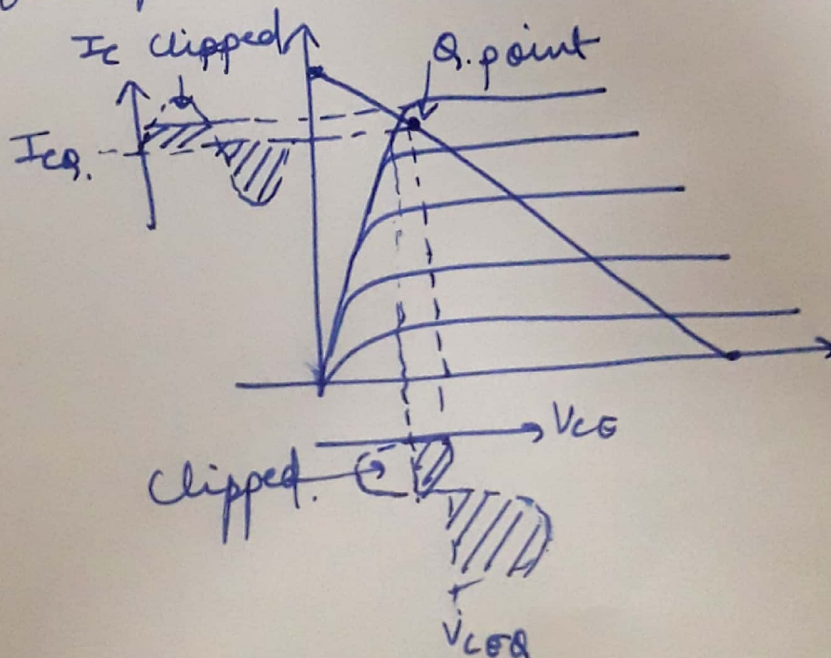 Ic Clipped
Q.point
ICQ.
VCE
Clipped.
VCEQ